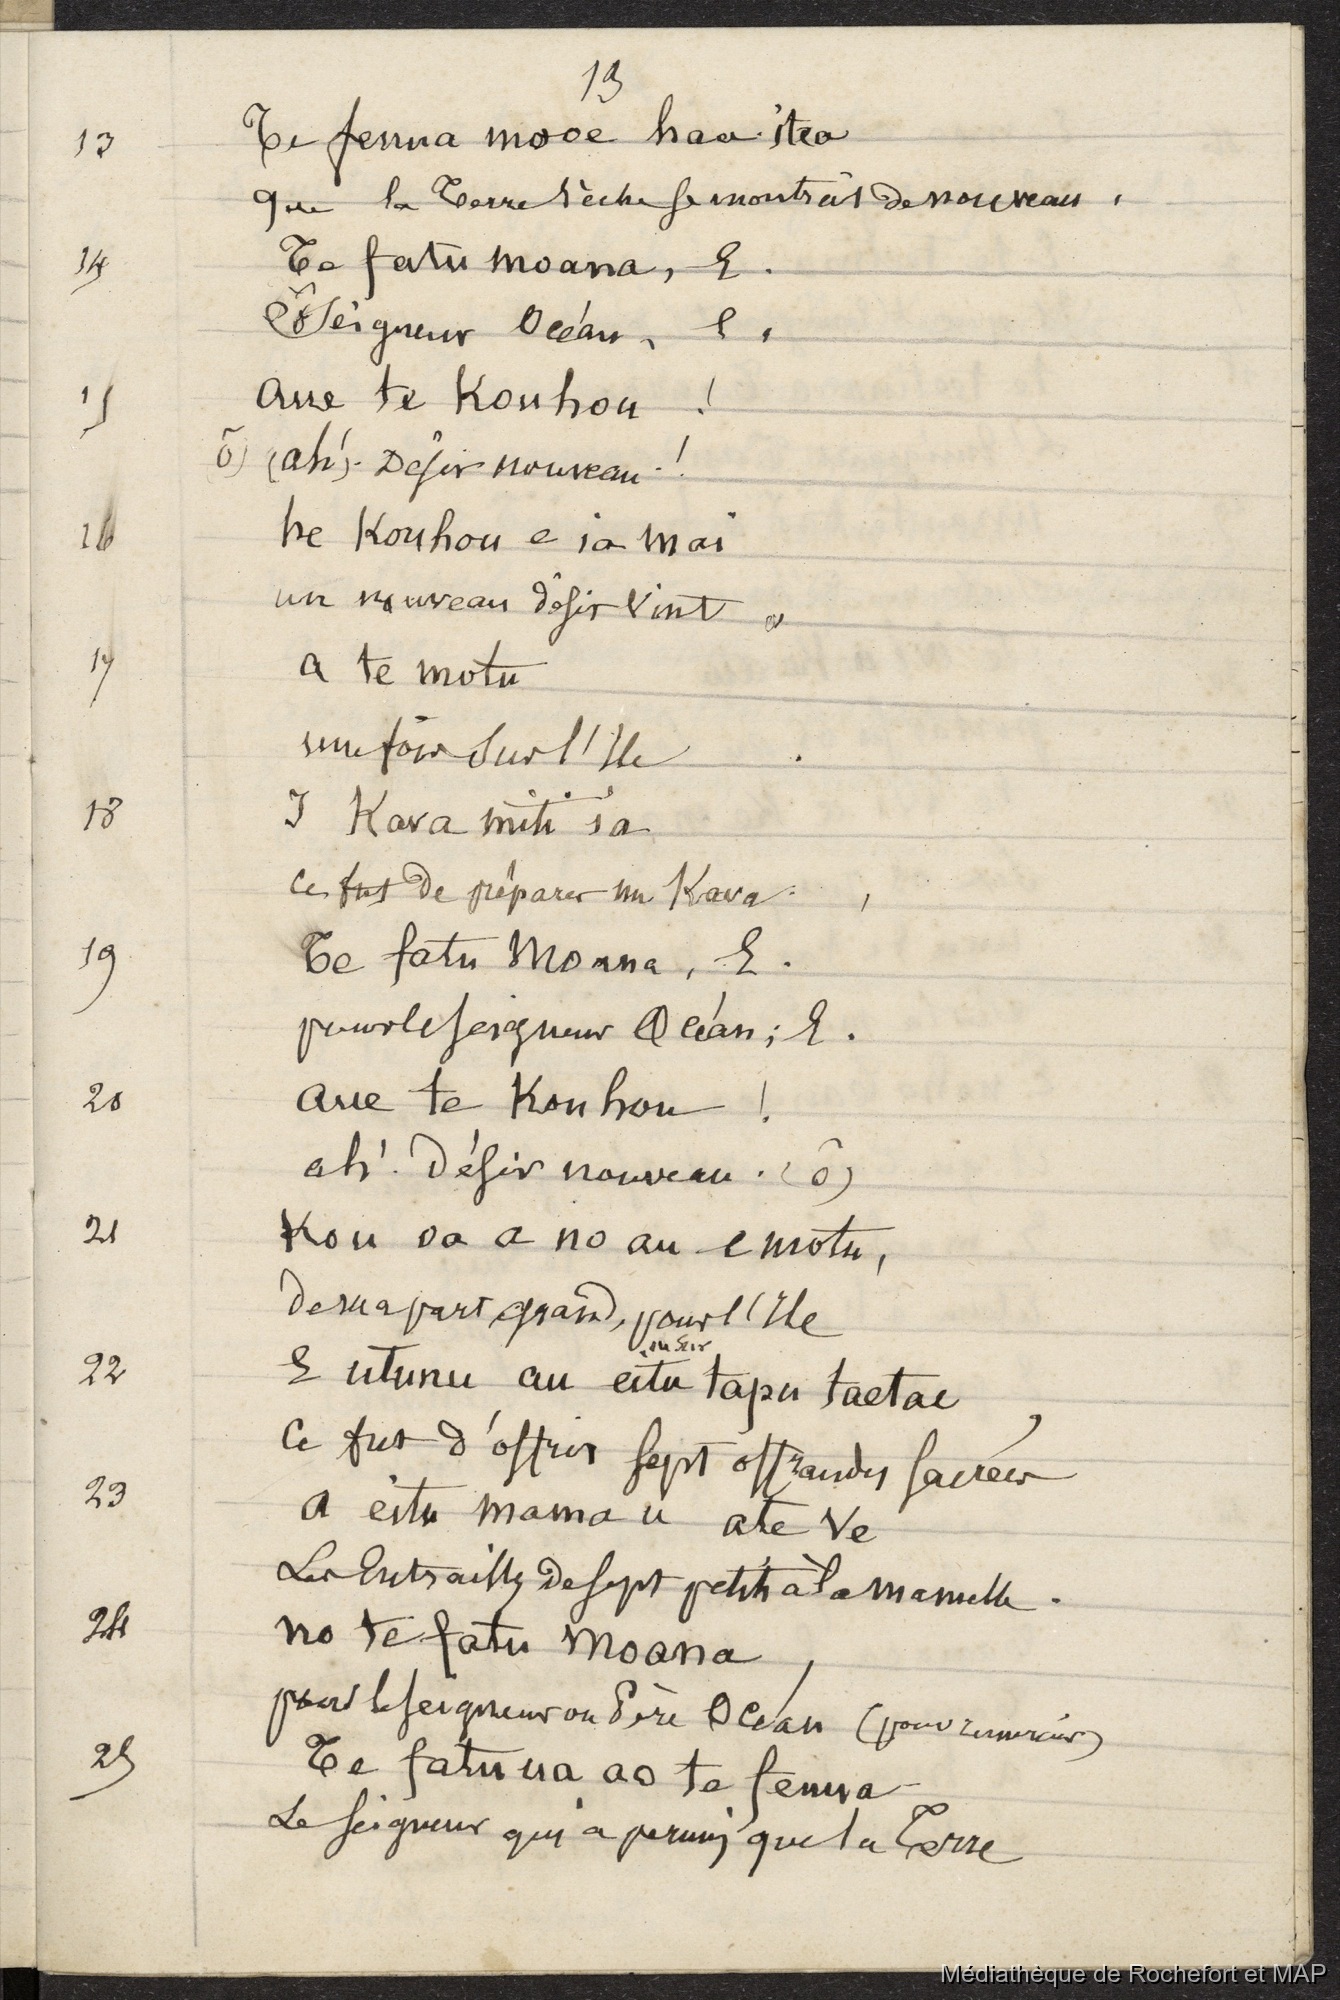 13
13 Te fenua mooe haa itea
que la Terre sèche se montrât de nouveau,
14 Te fatu moana, E.
Ô Seigneur Océan, E,
15 aue te Kouhou !
(ô) (ah!) Désir nouveau !
16 he Kouhou e ia mai
un nouveau désir vint
17 a te motu
une fois sur l'Ile
18 I Kava miti ia
ce fut de préparer un Kava,
19 Te fatu Moana, E.
pour le seigneur Océan; E.
20 aue te Kouhou !
ah! Désir nouveau. (ô)
21 Kou oa a no au e motu,
de ma part grand, pour l'Ile
22 E utunu au eitu tapu taetae
ce fut d'offrir sept offrandes sacrées
23 A eitu mama u ate Ve
Les Entrailles de sept petits à la mamelle.
24 no te fatu Moana,
pour le seigneur ou Père Océan (pour remercier)
25 Te fatu ua ao te fenua
Le seigneur qui a permis que la Terre
Médiathèque de Rochefort et MAP